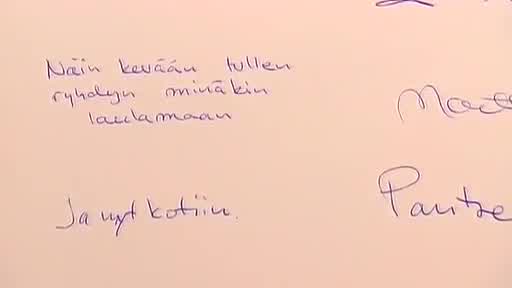 Näin kevään tullen
ryhdyn minäkin
laulamaan
Ja nyt kotiin.